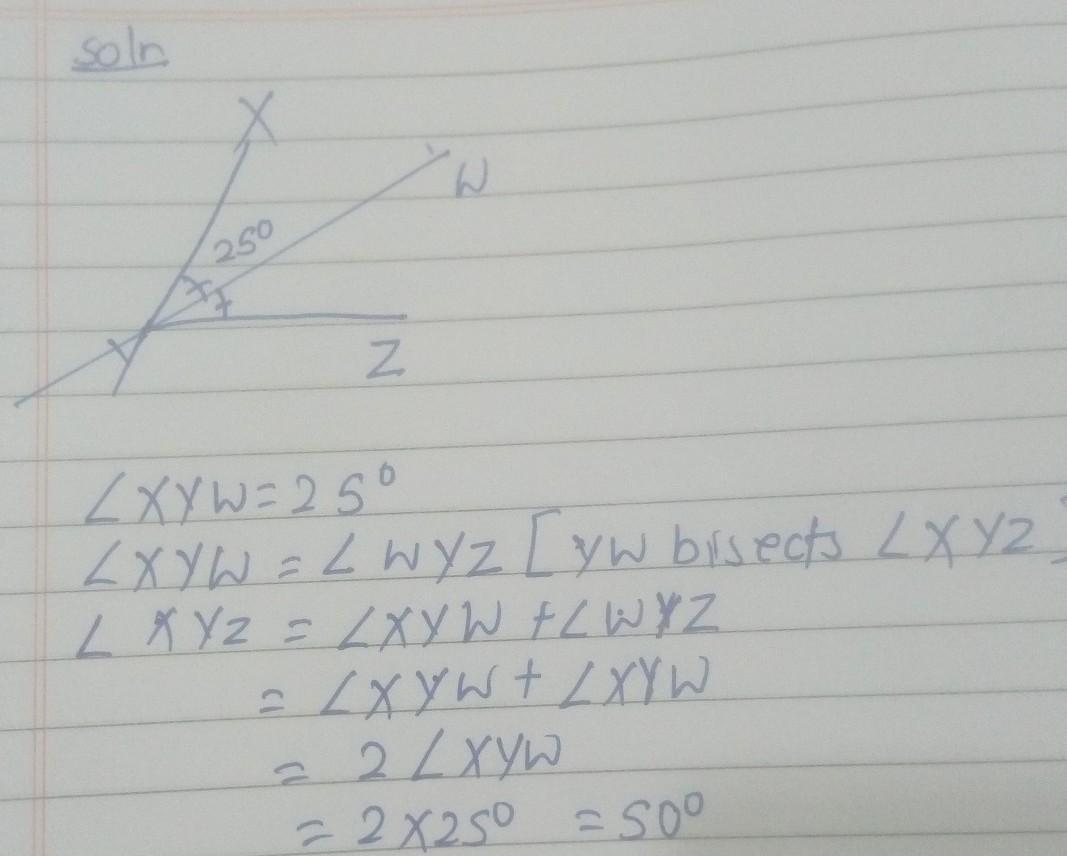 soln
X
W
25°
Y
Z
∠XYW=25°
∠XYW = ∠WYZ [YW bisects ∠XYZ]
∠XYZ = ∠XYW +∠WYZ
= ∠XYW + ∠XYW
= 2∠XYW
= 2×25° =50°